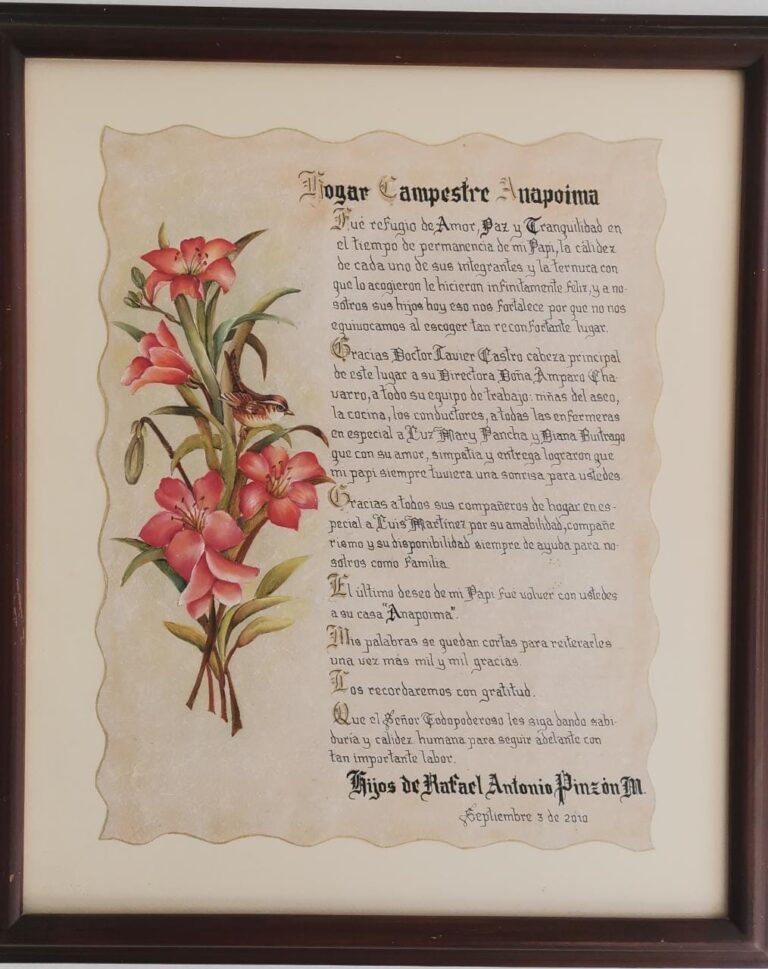 Hogar Campestre Anapoima
Fué refugio de Amor, Paz y Tranquilidad en
el tiempo de permanencia de mi Papi, la cálidez
de cada uno de sus integrantes y la ternura con
que lo acogieron le hicieron infinitamente feliz, y a no-
sotros sus hijos hoy eso nos fortalece por que no nos
equivocamos al escoger tan reconfortante lugar.
Gracias Doctor Javier Castro cabeza principal
de este lugar a su Directora Doña Amparo Cha-
varro, a todo su equipo de trabajo: niñas del aseo,
la cocina, los conductores, a todas las enfermeras
en especial a Luz Mary Pancha y Diana Buitrago
que con su amor, simpatia y entrega lograron que
mi papi siempre tuviera una sonrisa para ustedes.
Gracias a todos sus compañeros de hogar en es-
pecial a Luis Martínez por su amabilidad, compañe
rismo y su disponibilidad siempre de ayuda para no-
sotros como familia.
El último deseo de mi Papi fué volver con ustedes
a su casa "Anapoima".
Mis palabras se quedan cortas para reiterarles
una vez más mil y mil gracias.
Los recordaremos con gratitud.
Que el Señor Todopoderoso les siga dando sabi-
duría y calidez humana para seguir adelante con
tan importante labor.
Hijos de Rafael Antonio Pinzón M.
Septiembre 3 de 2010